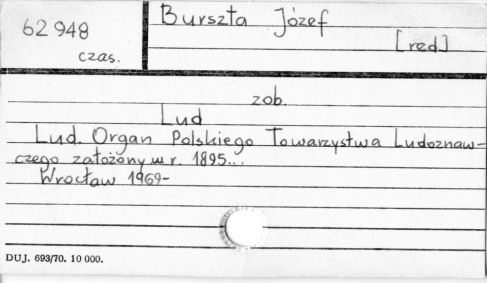 62 948
czas.
Burszta Józef
[red]
zob.
Lud
Lud. Organ Polskiego Towarzystwa Ludoznaw-
czego założony w r. 1895...
Wrocław 1969-
DUJ. 693/70. 10 000.